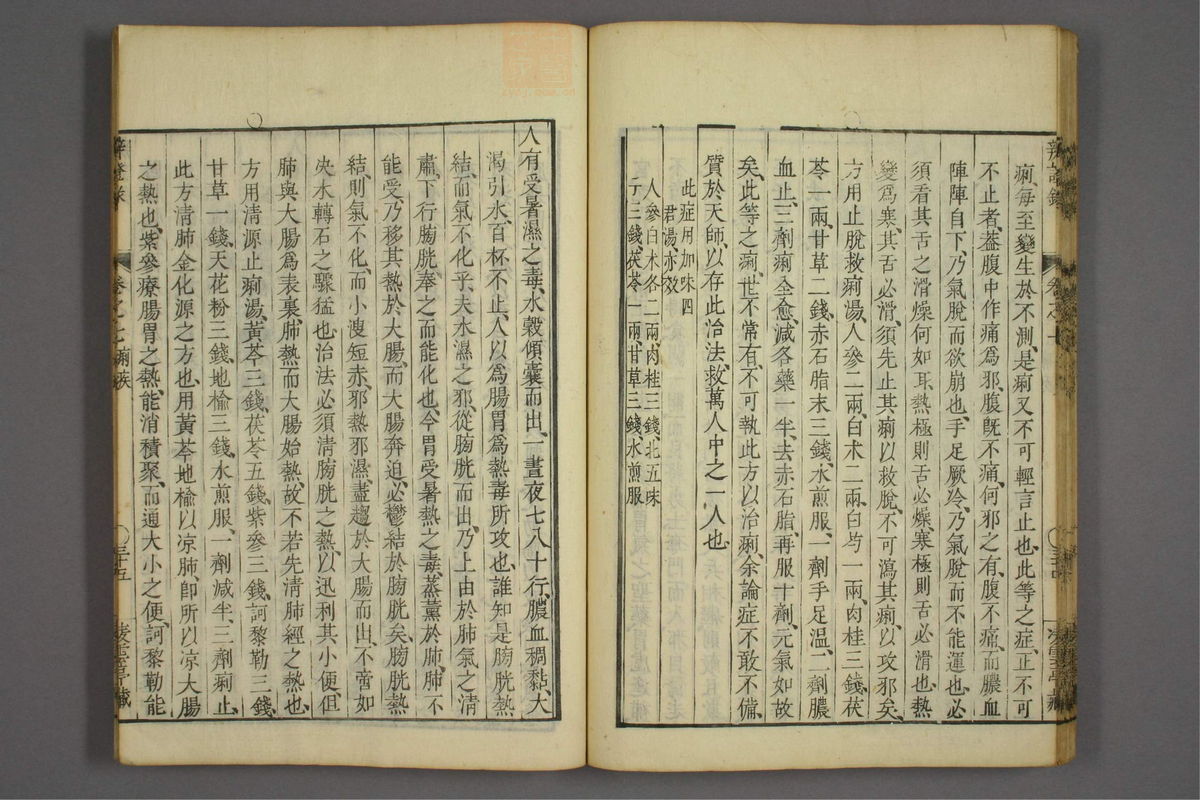 辨證錄
卷之七
三十四
痢每至變生於不測是痢又不可輕言止也此等之症止不可
不止者葢腹中作痛爲邪腹旣不痛何邪之有腹不痛而膿血
陣陣自下乃氣脫而欲崩也手足厥冷乃氣脫而不能運也必
須看其舌之滑燥何如耳熱極則舌必燥寒極則舌必滑也熱
變爲寒其舌必滑須先止其痢以救脫不可瀉其痢以攻邪矣
方用止脫救痢湯人參二兩白术二兩白芍一兩肉桂三錢茯
苓一兩甘草二錢赤石脂末三錢水煎服一劑手足溫二劑膿
血止三劑痢全愈減各藥一半去赤石脂再服十劑元氣如故
矣此等之痢世不常有不可執此方以治痢余論症不敢不備
質於天師以存此治法救萬人中之一人也
此症用加味四
君湯亦效
人參白术各二兩肉桂三錢北五味
子三錢茯苓一兩甘草三錢水煎服
人有受暑濕之毒水穀傾囊而出一晝夜七八十行膿血稠黏大
渴引水百杯不止人以爲腸胃爲熱毒所攻也誰知是膀胱熱
結而氣不化乎夫水濕之邪從膀胱而出乃上由於肺氣之清
肅下行膀胱奉之而能化也今胃受暑熱之毒蒸薰於肺肺不
能受乃移其熱於大腸而大腸奔迫必鬱結於膀胱矣膀胱熱
結則氣不化而小溲短赤邪熱邪濕盡趨於大腸而出不啻如
决水轉石之驟猛也治法必須清膀胱之熱以迅利其小便但
肺與大腸爲表裏肺熱而大腸始熱故不若先清肺經之熱也
方用清源止痢湯黃芩三錢茯苓五錢紫參三錢訶黎勒三錢
甘草一錢天花粉三錢地榆三錢水煎服一劑減半三劑痢止
此方清肺金化源之方也用黃芩地榆以凉肺卽所以凉大腸
之熱也紫參療腸胃之熱能消積聚而通大小之便訶黎勒能
辨證錄
卷之七 痢疾
三十五